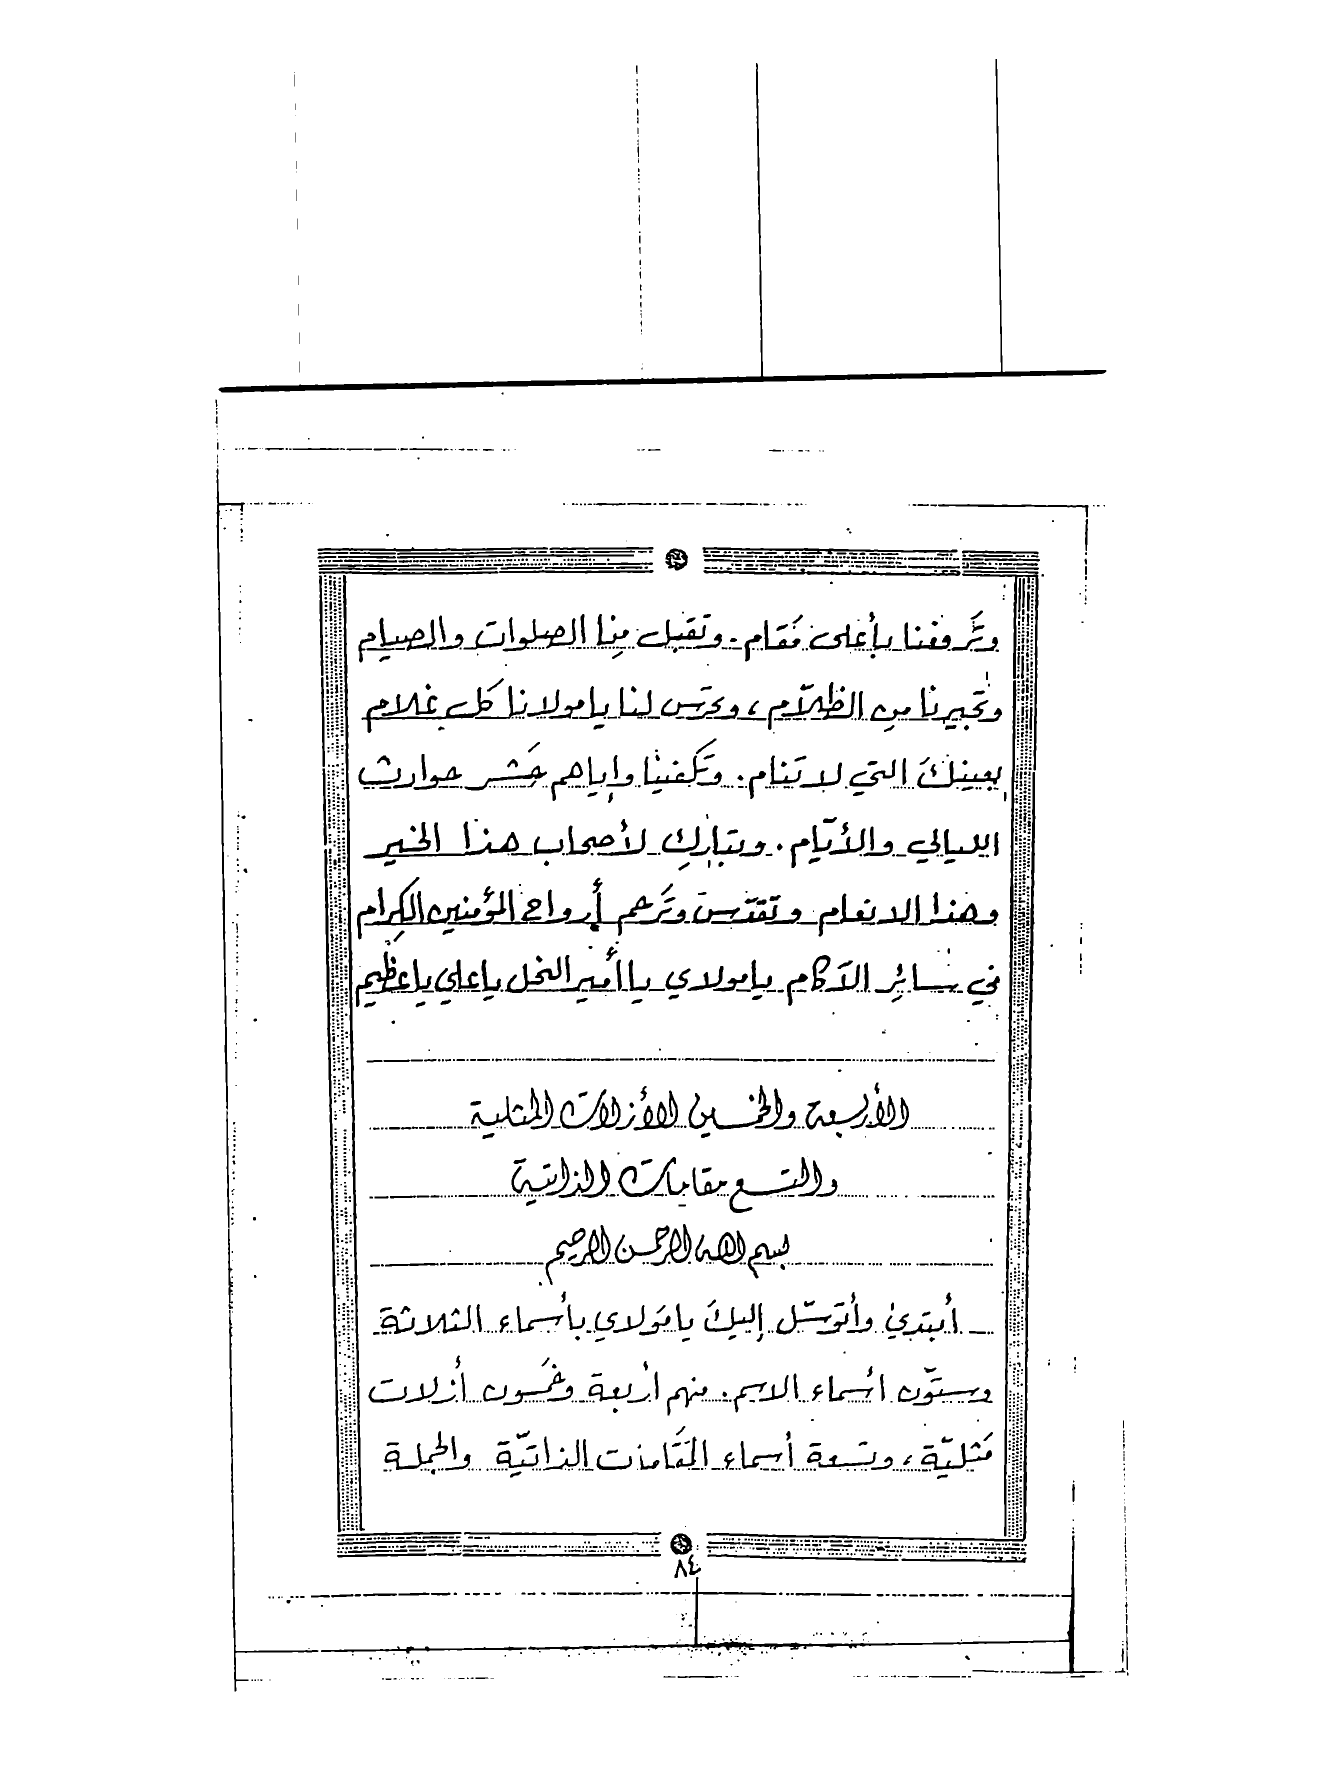 وتَرفعنا بأعلى مَقام. وتقبل مِنا الصلوات والصيام
وتجيرنا مِن الظلّام، وتحرَس لنا يا مولانا كل غلام
بعينكَ التي لا تَنام. وتَكفينا وإياهم شر حوادث
الليالي والأيّام. وتبارك لأصحاب هذا الخير
وهذا الانعام وتقدّس وتَرحم أرواح المؤمنين الكِرام
في سائِر الآكام يا مولاي يا أمير النحل يا علي يا عظيم
الأربعة والخمسين الأزلات المثلية
والتسع مقامات الذاتية
بسم الله الرحمن الرحيم
أبتدئ وأتوسّل إليكَ يا مَولاي بأسماء الثلاثة
وستّون أسماء الاسم. منهم أربعة وخمسون أزلات
مَثليّة، وتسعة أسماء المَقامات الذاتيّة والجملة
٨٤